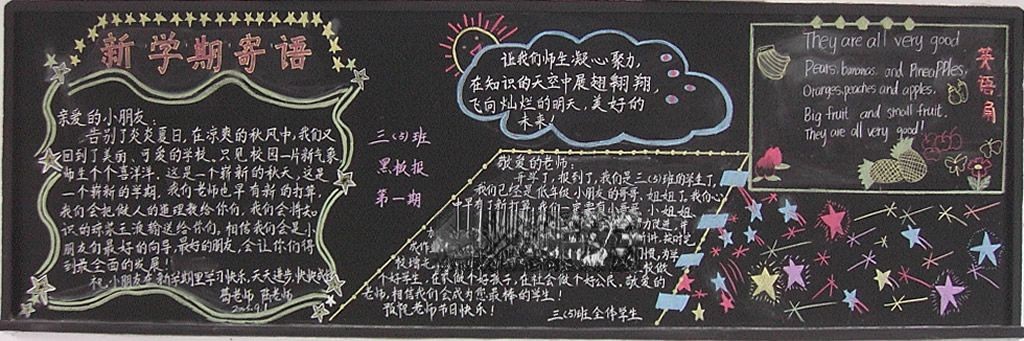 新学期寄语
亲爱的小朋友：
告别了炎炎夏日，在凉爽的秋风中，我们又
回到了美丽、可爱的学校。只见校园一片新气象，
师生个个喜洋洋。这是一个崭新的秋天，这是
一个崭新的学期，我们老师也早有新的打算，
我们会把做人的道理教给你们，我们会将知
识的琼浆玉液输送给你们，相信我们会是小
朋友们最好的向导，最好的朋友，会让你们得
到最全面的发展！
祝：小朋友在新学期里学习快乐，天天进步，快快
老师 老师
三(5)班
黑板报
第一期
让我们师生凝心聚力，
在知识的天空中展翅翱翔，
飞向灿烂的明天，美好的
未来！
敬爱的老师：
开学了，报到了，我们是三(5)班的学生了，
我们已经是低年级小朋友的哥哥、姐姐了，我们心
中早有了新打算
小姐姐、
个好学生，在家做个好孩子，在社会做个好公民，敬爱的
老师，相信我们会成为您最棒的学生！
预祝老师节日快乐！
三(5)班全体学生
They are all very good
Pears, bananas and Pineapples,
Oranges, peaches and apples.
Big fruit and small fruit.
They are all very good!
英语角